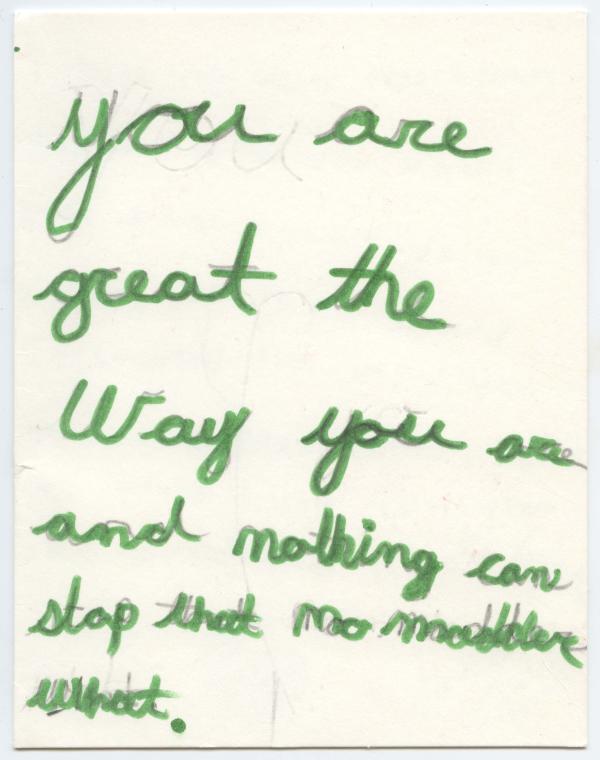 you are
great the
Way you are
and nothing can
stop that no matter
what.